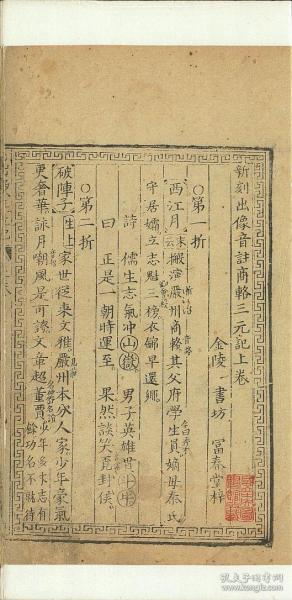 新刻出像音註商輅三元記上卷
金陵 書坊 富春堂梓
○第一折
西江月 末云 搬演嚴州商輅其父府學生員嫡母秦氏
守居孀立志魁三榜衣錦早還鄉
詩 儒生志氣冲山嶽 男子英雄貫斗牛
曰 正是一朝時運至 果然談笑覓封侯
○第二折
破陣子 生上 家世從來文推嚴州本分人家少年豪氣
更奢華詠月嘲風是可誇文章超董賈
少年多宋志有
餘功名不貽待
孔夫子旧书网
www.kongfz.com